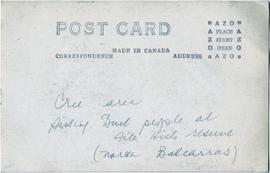 POST CARD
MADE IN CANADA
CORRESPONDENCE ADDRESS
AZO
PLACE
STAMP
HERE
AZO
Cree area
Sitting Bull people at
File Hills reserve
(north Balcarras)